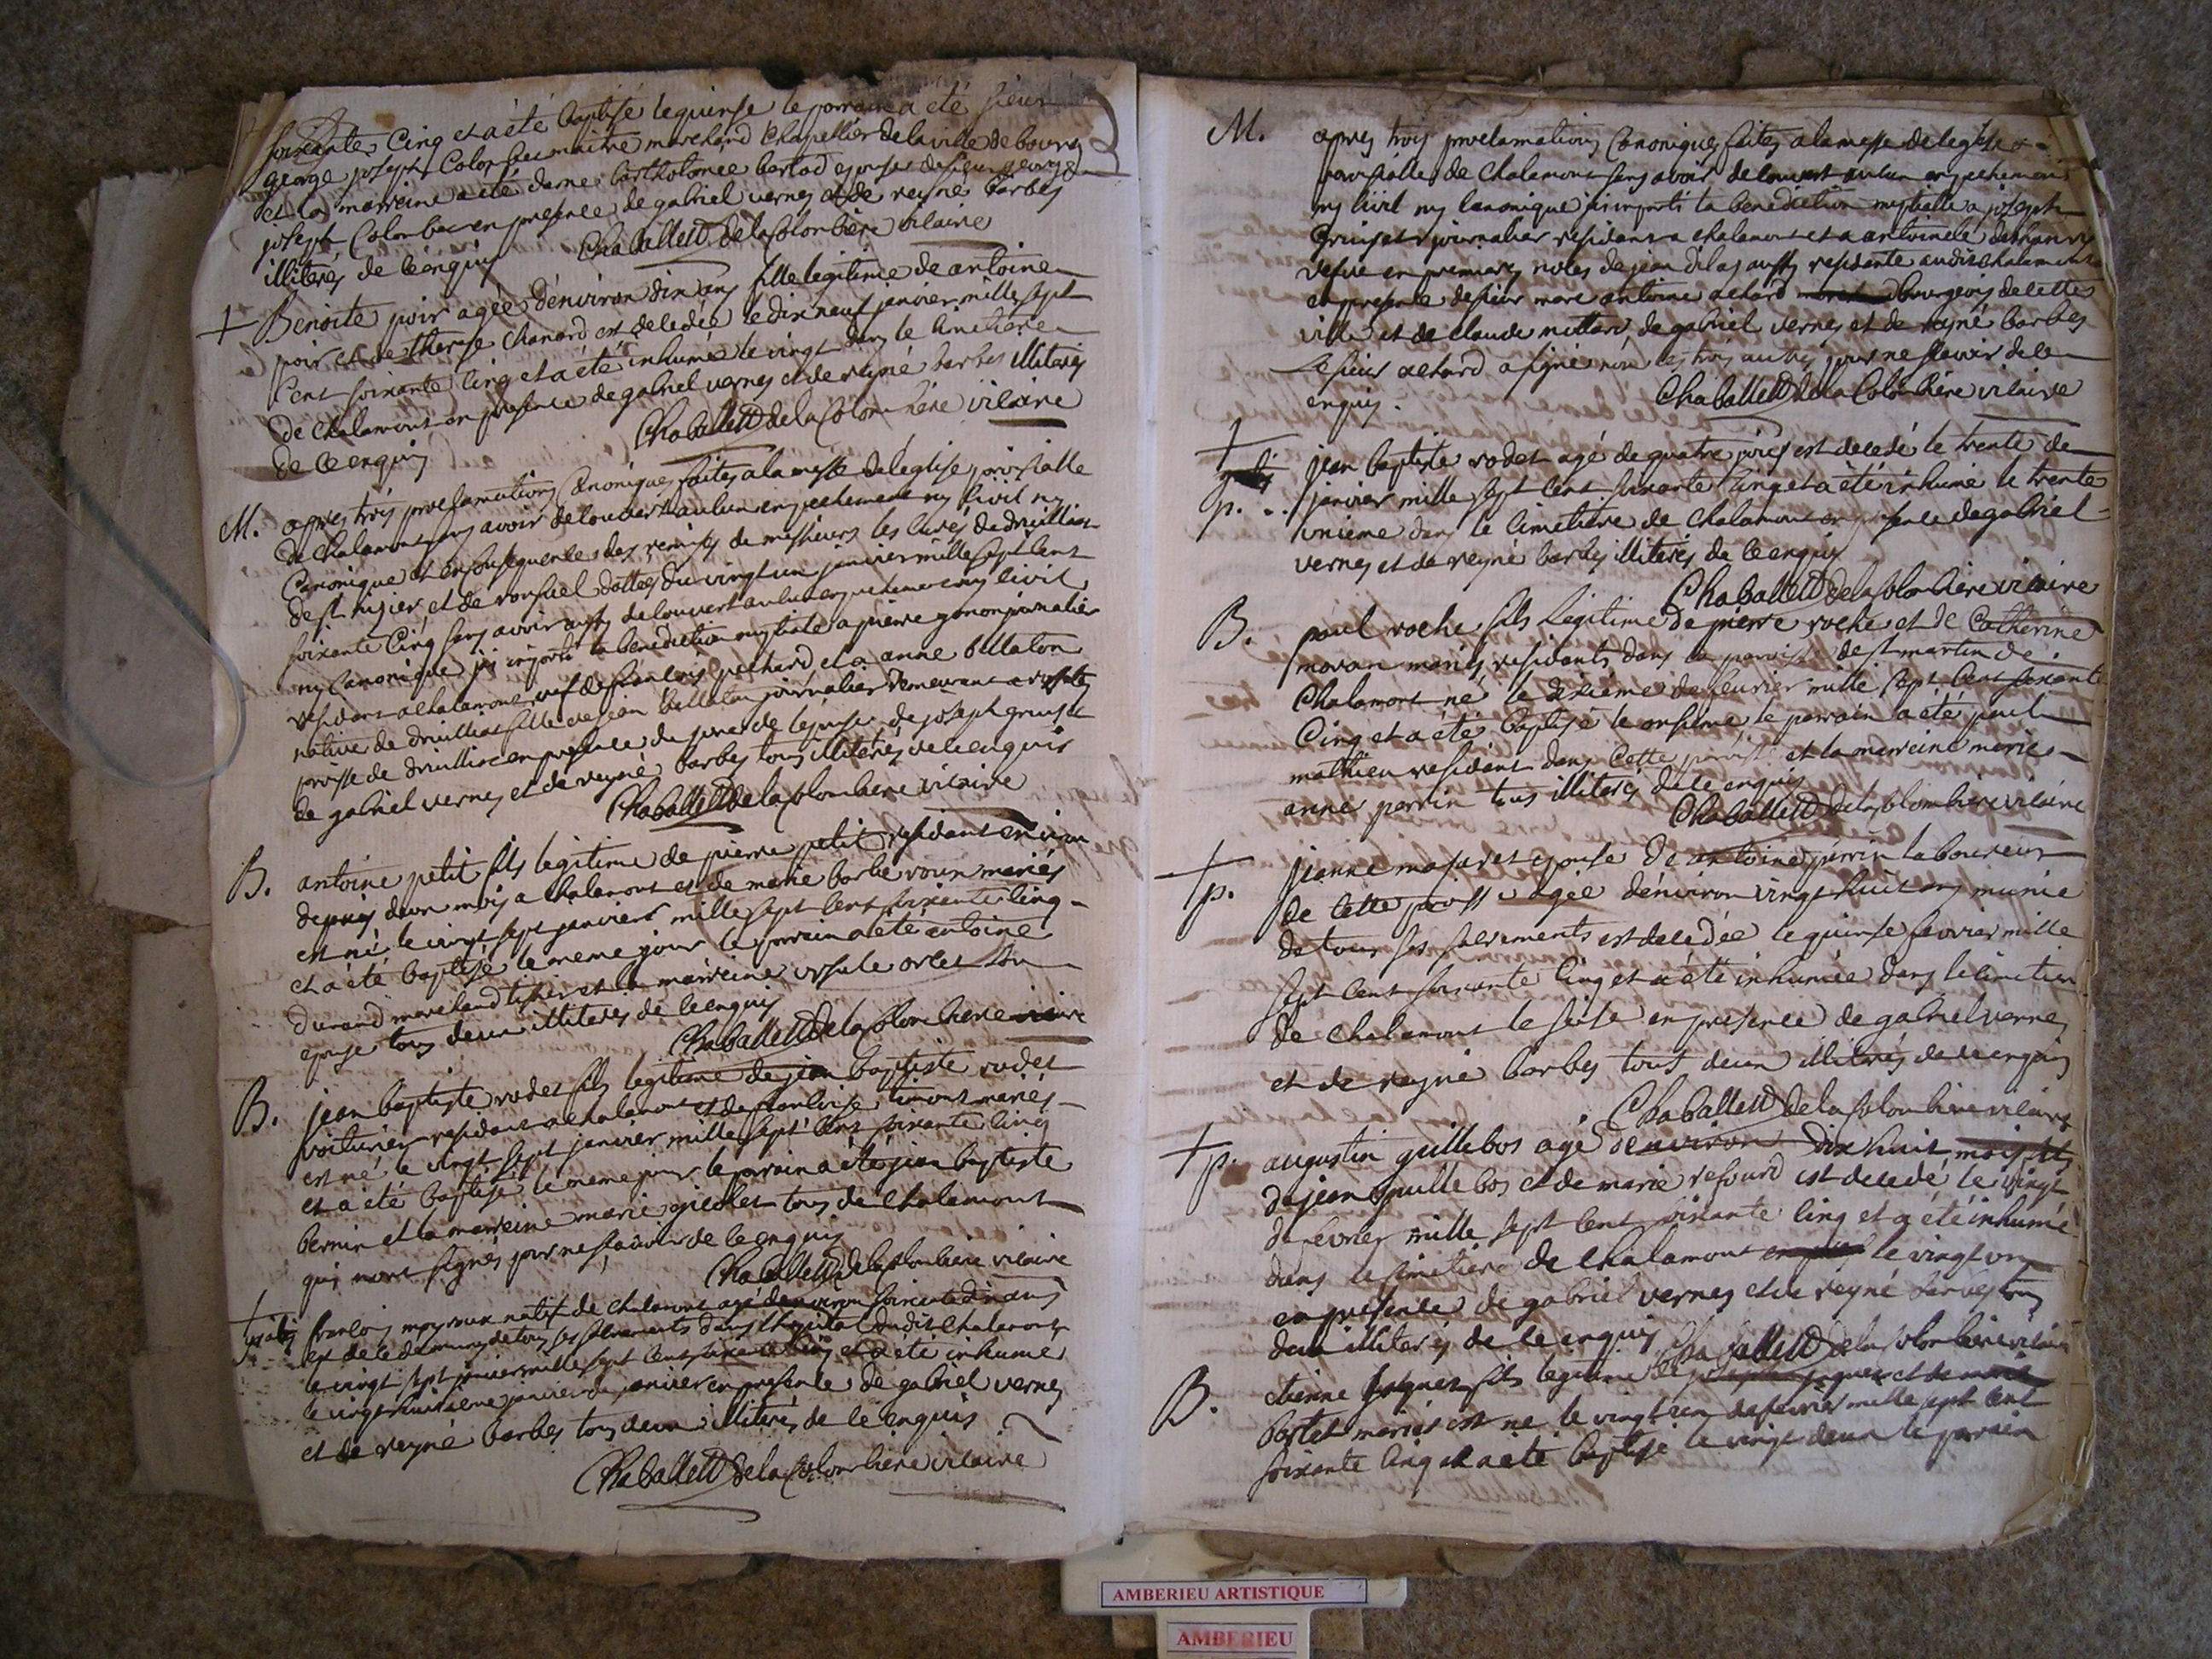 soixante Cinq et a été baptisé le quinse le parrain a été sieur
george joseph Colombec maitre marchand Chapellier de la ville de bourg
et la marreine a été dame bartholomee bertod epouse de sieur george
joseph Colombec en presence de gabriel vernes et de reyné barbes
illiterés de ce enquis Chaballett de la Colombière vicaire
+ Benoite poir agée d'environ dix ans fille legitime de antoine
poir et de therese Chanard est decedée le dix neuf janvier mille sept
cent soixante cinq et a été inhumé le vingt dans le cimetiere
de chalamont en presence de gabriel vernes et de reyné barbes illiterés
de ce enquis Chaballett de la Colombière vicaire
M. apres trois proclamations Canoniques faites a la messe de l'eglise paroissialle
de chalamont sans avoir decouvert aucun empechement ny civil ny
Canonique et en consequence des remises de messieurs les curés de druillias
de st nizier et de ronsuel dattées du vingt un janvier mille sept cent
soixante Cinq sans avoir aussy decouvert aucun empechement ny civil
ny Canonique j'ai imparti la benediction nuptiale a pierre gonon journalier
residant a chalamont veuf de francois pechard et a anne billaton
native de druillias fille de jean billaton journalier demeurant a
paroisse de druillias en presence du pere de l'epouse de joseph gruiset
de gabriel vernes et de reyné barbes tous illiterés de ce enquis
Chaballett de la Colombiere vicaire
B. antoine petit fils legitime de pierre petit residant environ
depuis deux mois a chalamont et de marie barbe voun mariés
est né le vingt sept janvier mille sept cent soixante cinq
et a été baptisé le meme jour le parrain a été antoine
durand marchand tissier et la marreine ursule orcet son
epouse tous deux illiterés de ce enquis
Chaballett de la Colombiere vicaire
B. jean baptiste rodet fils legitime de jean baptiste rodet
voiturier residant a chalamont et de francoise timont mariés
est né le vingt sept janvier mille sept cent soixante cinq
et a été baptisé le meme jour le parrain a été jean baptiste
bernin et la marreine marie giollet tous de chalamont
qui n'ont signés pour ne scavoir de ce enquis
Chaballett de la Colombiere vicaire
+ francois moyroux natif de chalamont agé d'environ soixante dix ans
est decedé muny de tous ses sacrements dans l'hopital dudit chalamont
le vingt sept janvier mille sept cent soixante cinq et a été inhumé
le vingt huitieme janvier du janvier en presence de gabriel vernes
et de reyné barbes tous deux illiterés de ce enquis
Chaballett de la Colombiere vicaire
M. apres trois proclamations Canoniques faites a la messe de l'eglise
paroissialle de Chalamont sans avoir decouvert aucun empechement
ny civil ny canonique j'ai imparti la benediction nuptialle a joseph
gruiset journalier residant a chalamont et a antoinete
vefve en premieres noces de jean dilas aussy residante audit chalamont
en presence de sieur marc antoine achard bourgeois de cette
ville et de claude mittard de gabriel vernes et de reyné barbes
le sieur achard a signé non les trois autres pour ne scavoir de ce
enquis. Chaballett de la Colombière vicaire
+ jean baptiste rodet agé de quatre jours est decedé le trente de
p. janvier mille sept cent soixante cinq et a été inhumé le trente
unieme dans le cimetiere de chalamont en presence de gabriel
vernes et de reyné barbes illiterés de ce enquis
Chaballett de la Colombiere vicaire
B. paul roche fils legitime de pierre roche et de Catherine
moran mariés residants dans la paroisse de st martin de
Chalamont né le dixième de fevrier mille sept cent soixante
Cinq et a été baptisé le onsieme le parrain a été paul
mathieu residant dans Cette paroisse et la marreine marie
anne perrin tous illiterés de ce enquis
Chaballett de la Colombiere vicaire
+ jeanne mazuret epouse de antoine perrin laboureur
p. de cette paroisse agée d'environ vingt huit ans munie
de tous ses sacrements est decedée le quinse fevrier mille
sept cent soixante cinq et a été inhumée dans le cimetiere
de chalamont le seise en presence de gabriel vernes
et de reyné barbes tous deux illiterés de ce enquis
Chaballett de la Colombiere vicaire
+ p. augustin guillebos agé d'environ dix huit mois fils
de jean guillebos et de marie refourd est decedé le vingt
de fevrier mille sept cent soixante cinq et a été inhumé
dans le cimetiere de chalamont le vingt un
en presence de gabriel vernes et de reyné barbes tous
deux illiterés de ce enquis Chaballett de la Colombiere vicaire
B. etienne joignet fils legitime de joseph joignet et de marie
bortet mariés est né le vingt un de fevrier mille sept cent
soixante cinq et a été baptisé le vingt deux le parrain
AMBERIEU ARTISTIQUE
AMBERIEU